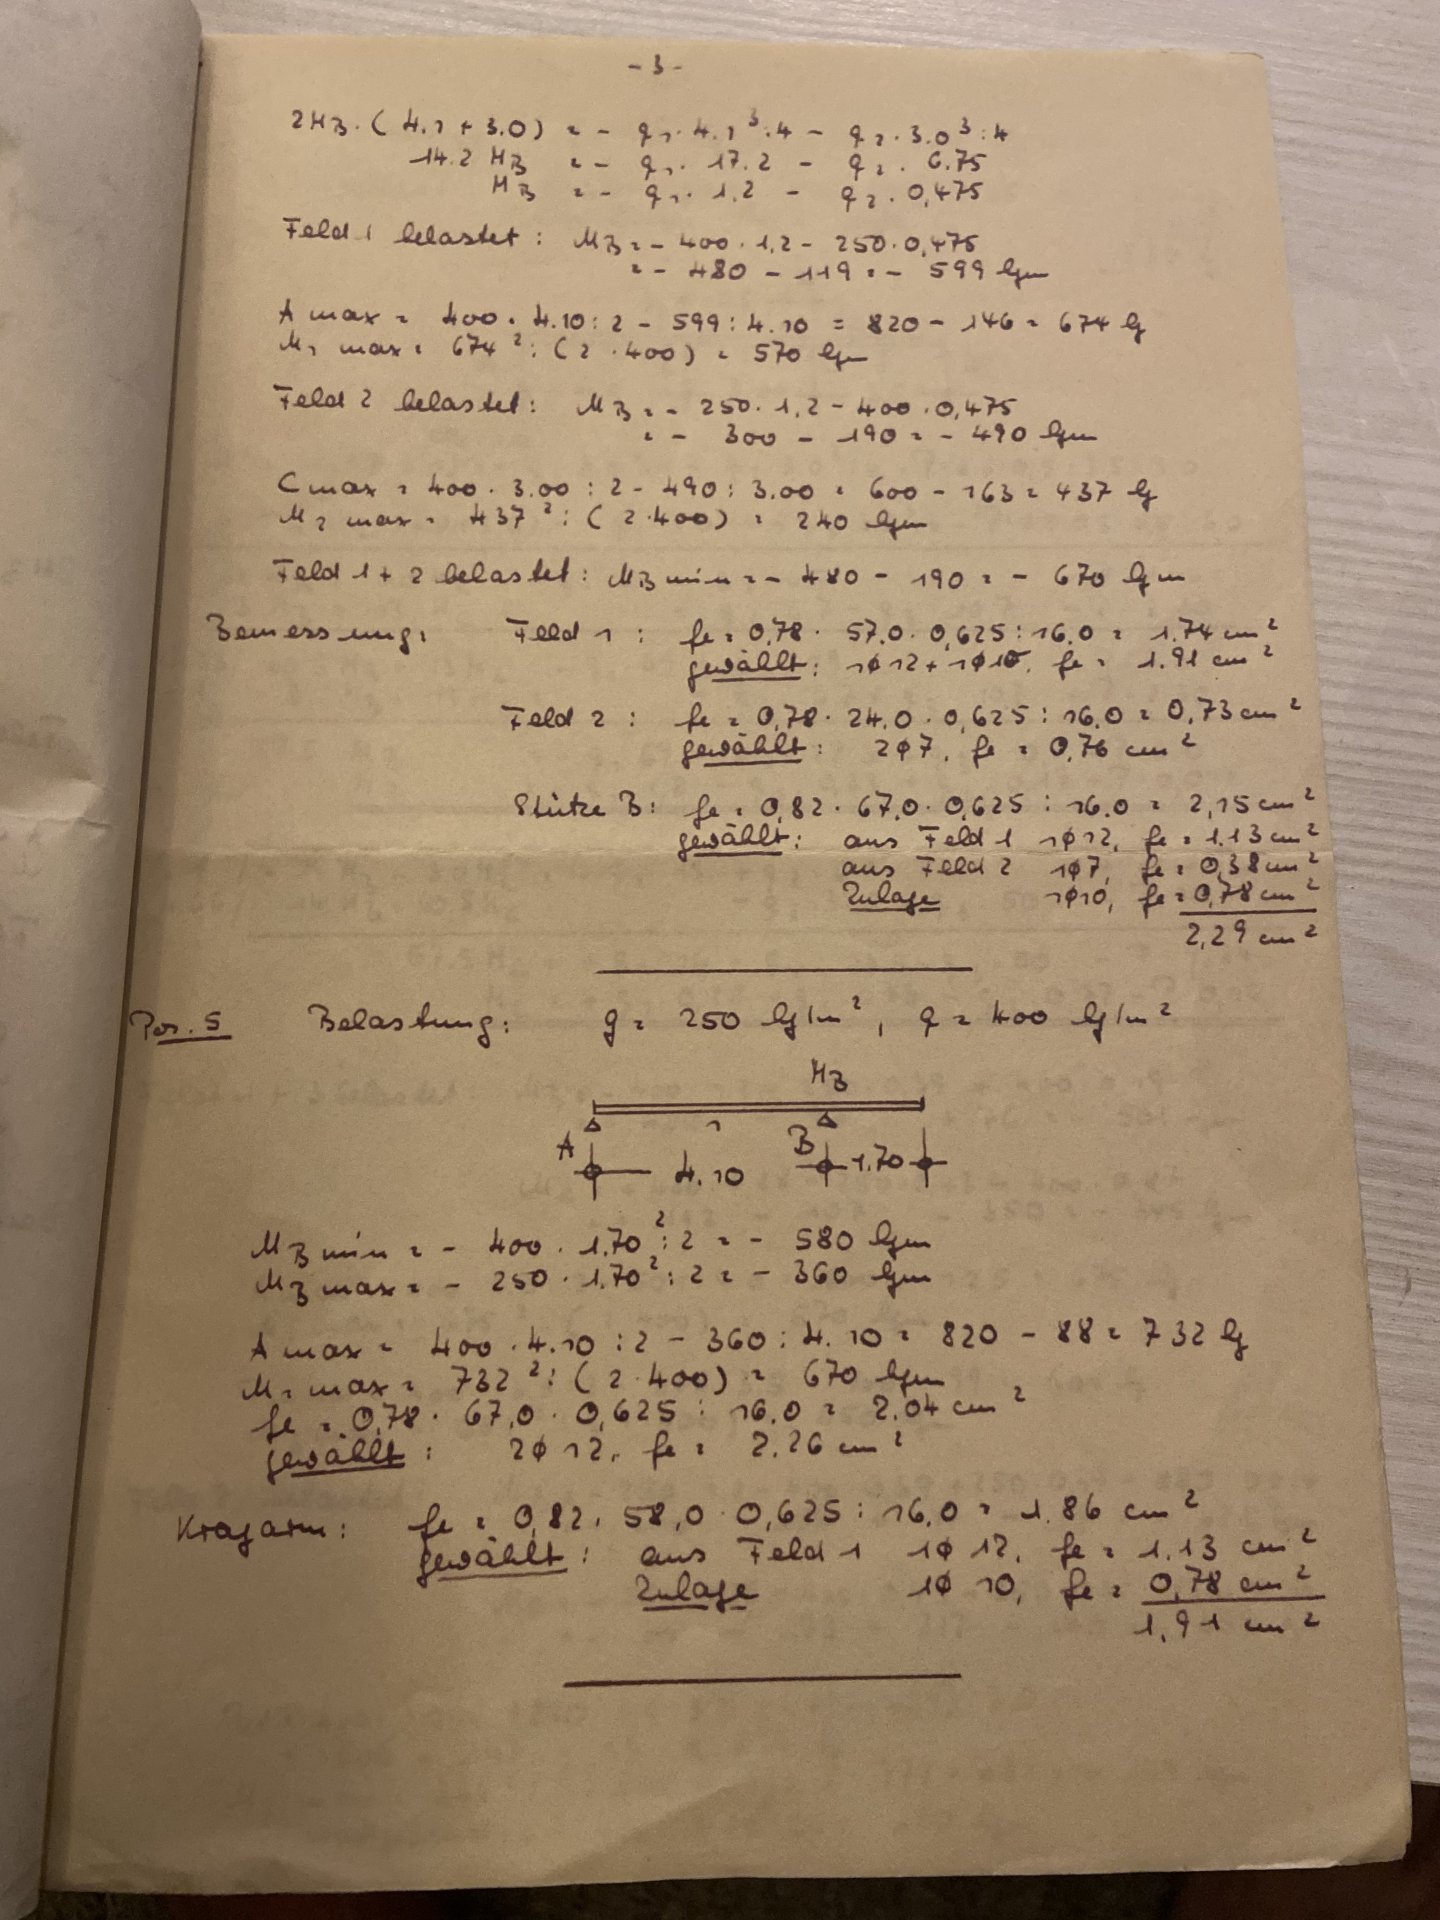 - 3 -
2MB · ( 4.1 + 3.0 ) = - q1 · 4.1³ : 4 - q2 · 3.0³ : 4
14.2 MB = - q1 · 17.2 - q2 · 6.75
MB = - q1 · 1.2 - q2 · 0,475
Feld 1 belastet : MB = - 400 · 1,2 - 250 · 0,475
= - 480 - 119 = - 599 kgm
A max = 400 · 4.10 : 2 - 599 : 4.10 = 820 - 146 = 674 kg
M1 max = 674² : ( 2 · 400 ) = 570 kgm
Feld 2 belastet : MB = - 250 · 1,2 - 400 · 0,475
= - 300 - 190 = - 490 kgm
C max = 400 · 3.00 : 2 - 490 : 3.00 = 600 - 163 = 437 kg
M2 max = 437² : ( 2 · 400 ) = 240 kgm
Feld 1 + 2 belastet : MB min = - 480 - 190 = - 670 kgm
Bemessung : Feld 1 : fe = 0,78 · 57,0 · 0,625 : 16.0 = 1.74 cm²
gewählt : 1ϕ12 + 1ϕ10, fe = 1.91 cm²
Feld 2 : fe = 0,78 · 24.0 · 0,625 : 16.0 = 0,73 cm²
gewählt : 2ϕ7, fe = 0,76 cm²
Stütze B : fe = 0,82 · 67,0 · 0,625 : 16.0 = 2,15 cm²
gewählt : aus Feld 1 1ϕ12, fe = 1.13 cm²
aus Feld 2 1ϕ7, fe = 0,38 cm²
Zulage 1ϕ10, fe = 0,78 cm²
2,29 cm²
Pos. 5 Belastung : g = 250 kg/m², q = 400 kg/m²
MB
1
A 4.10 B 1.70
MB min = - 400 · 1.70² : 2 = - 580 kgm
MB max = - 250 · 1.70² : 2 = - 360 kgm
A max = 400 · 4.10 : 2 - 360 : 4.10 = 820 - 88 = 732 kg
M1 max = 732² : ( 2 · 400 ) = 670 kgm
fe = 0,78 · 67,0 · 0,625 : 16.0 = 2.04 cm²
gewählt : 2ϕ12, fe = 2.26 cm²
Kragarm : fe = 0,82 · 58,0 · 0,625 : 16,0 = 1.86 cm²
gewählt : aus Feld 1 1ϕ12, fe = 1.13 cm²
Zulage 1ϕ10, fe = 0,78 cm²
1,91 cm²